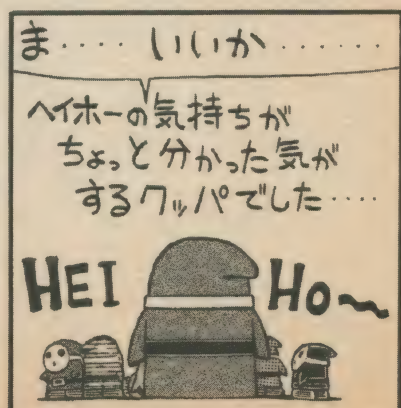 ま‥‥ いいか‥‥‥
ヘイホーの気持ちが
ちょっと分かった気が
するクッパでした‥‥
HEI HO〜